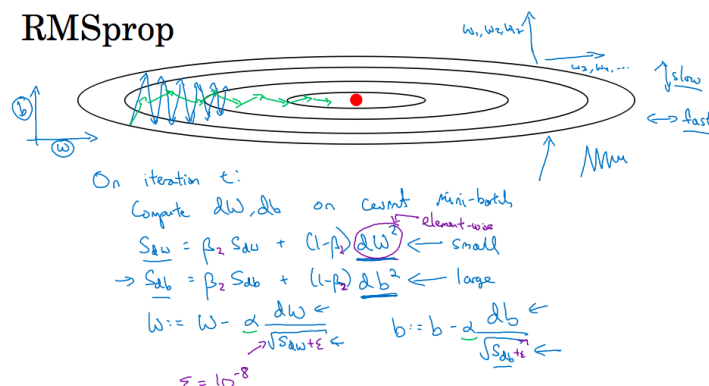 RMSprop
w₁, w₂, w₇
w₃, w₄, ...
slow
fast
b
w
On iteration t:
Compute dW, db on current mini-batch
element-wise
S_dw = β₂ S_dw + (1-β₂) dW² ← small
→ S_db = β₂ S_db + (1-β₂) db² ← large
w := w - α dw/√(S_dw+ε) ← b := b - α db/√(S_db+ε) ←
ε = 10⁻⁸